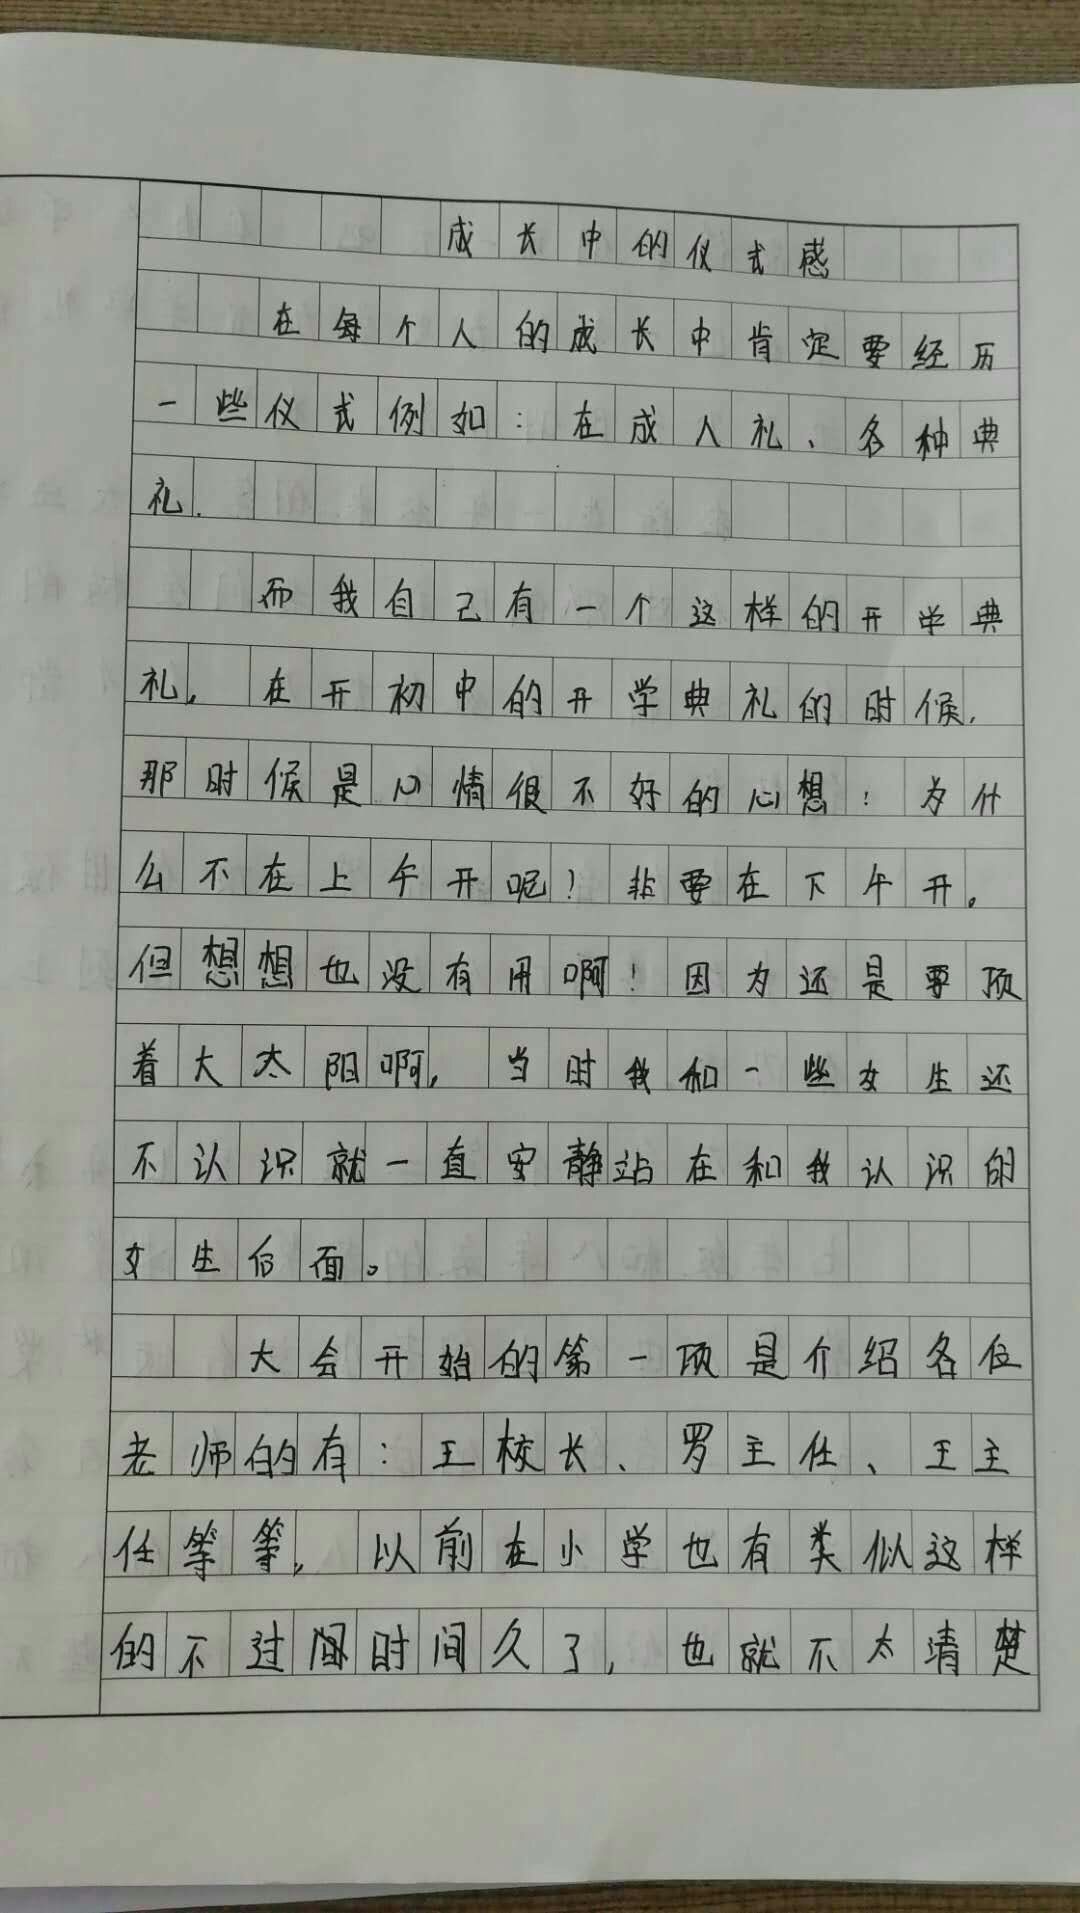 成长中的仪式感
在每个人的成长中肯定要经历
一些仪式例如：在成人礼、各种典
礼.
而我自己有一个这样的开学典
礼，在开初中的开学典礼的时候，
那时候是心情很不好的心想：为什
么不在上午开呢！非要在下午开。
但想想也没有用啊！因为还是要顶
着大太阳啊，当时我和一些女生还
不认识就一直安静站在和我认识的
女生后面。
大会开始的第一项是介绍各位
老师的有：王校长、罗主任、王主
任等等，以前在小学也有类似这样
的不过时间久了，也就不太清楚